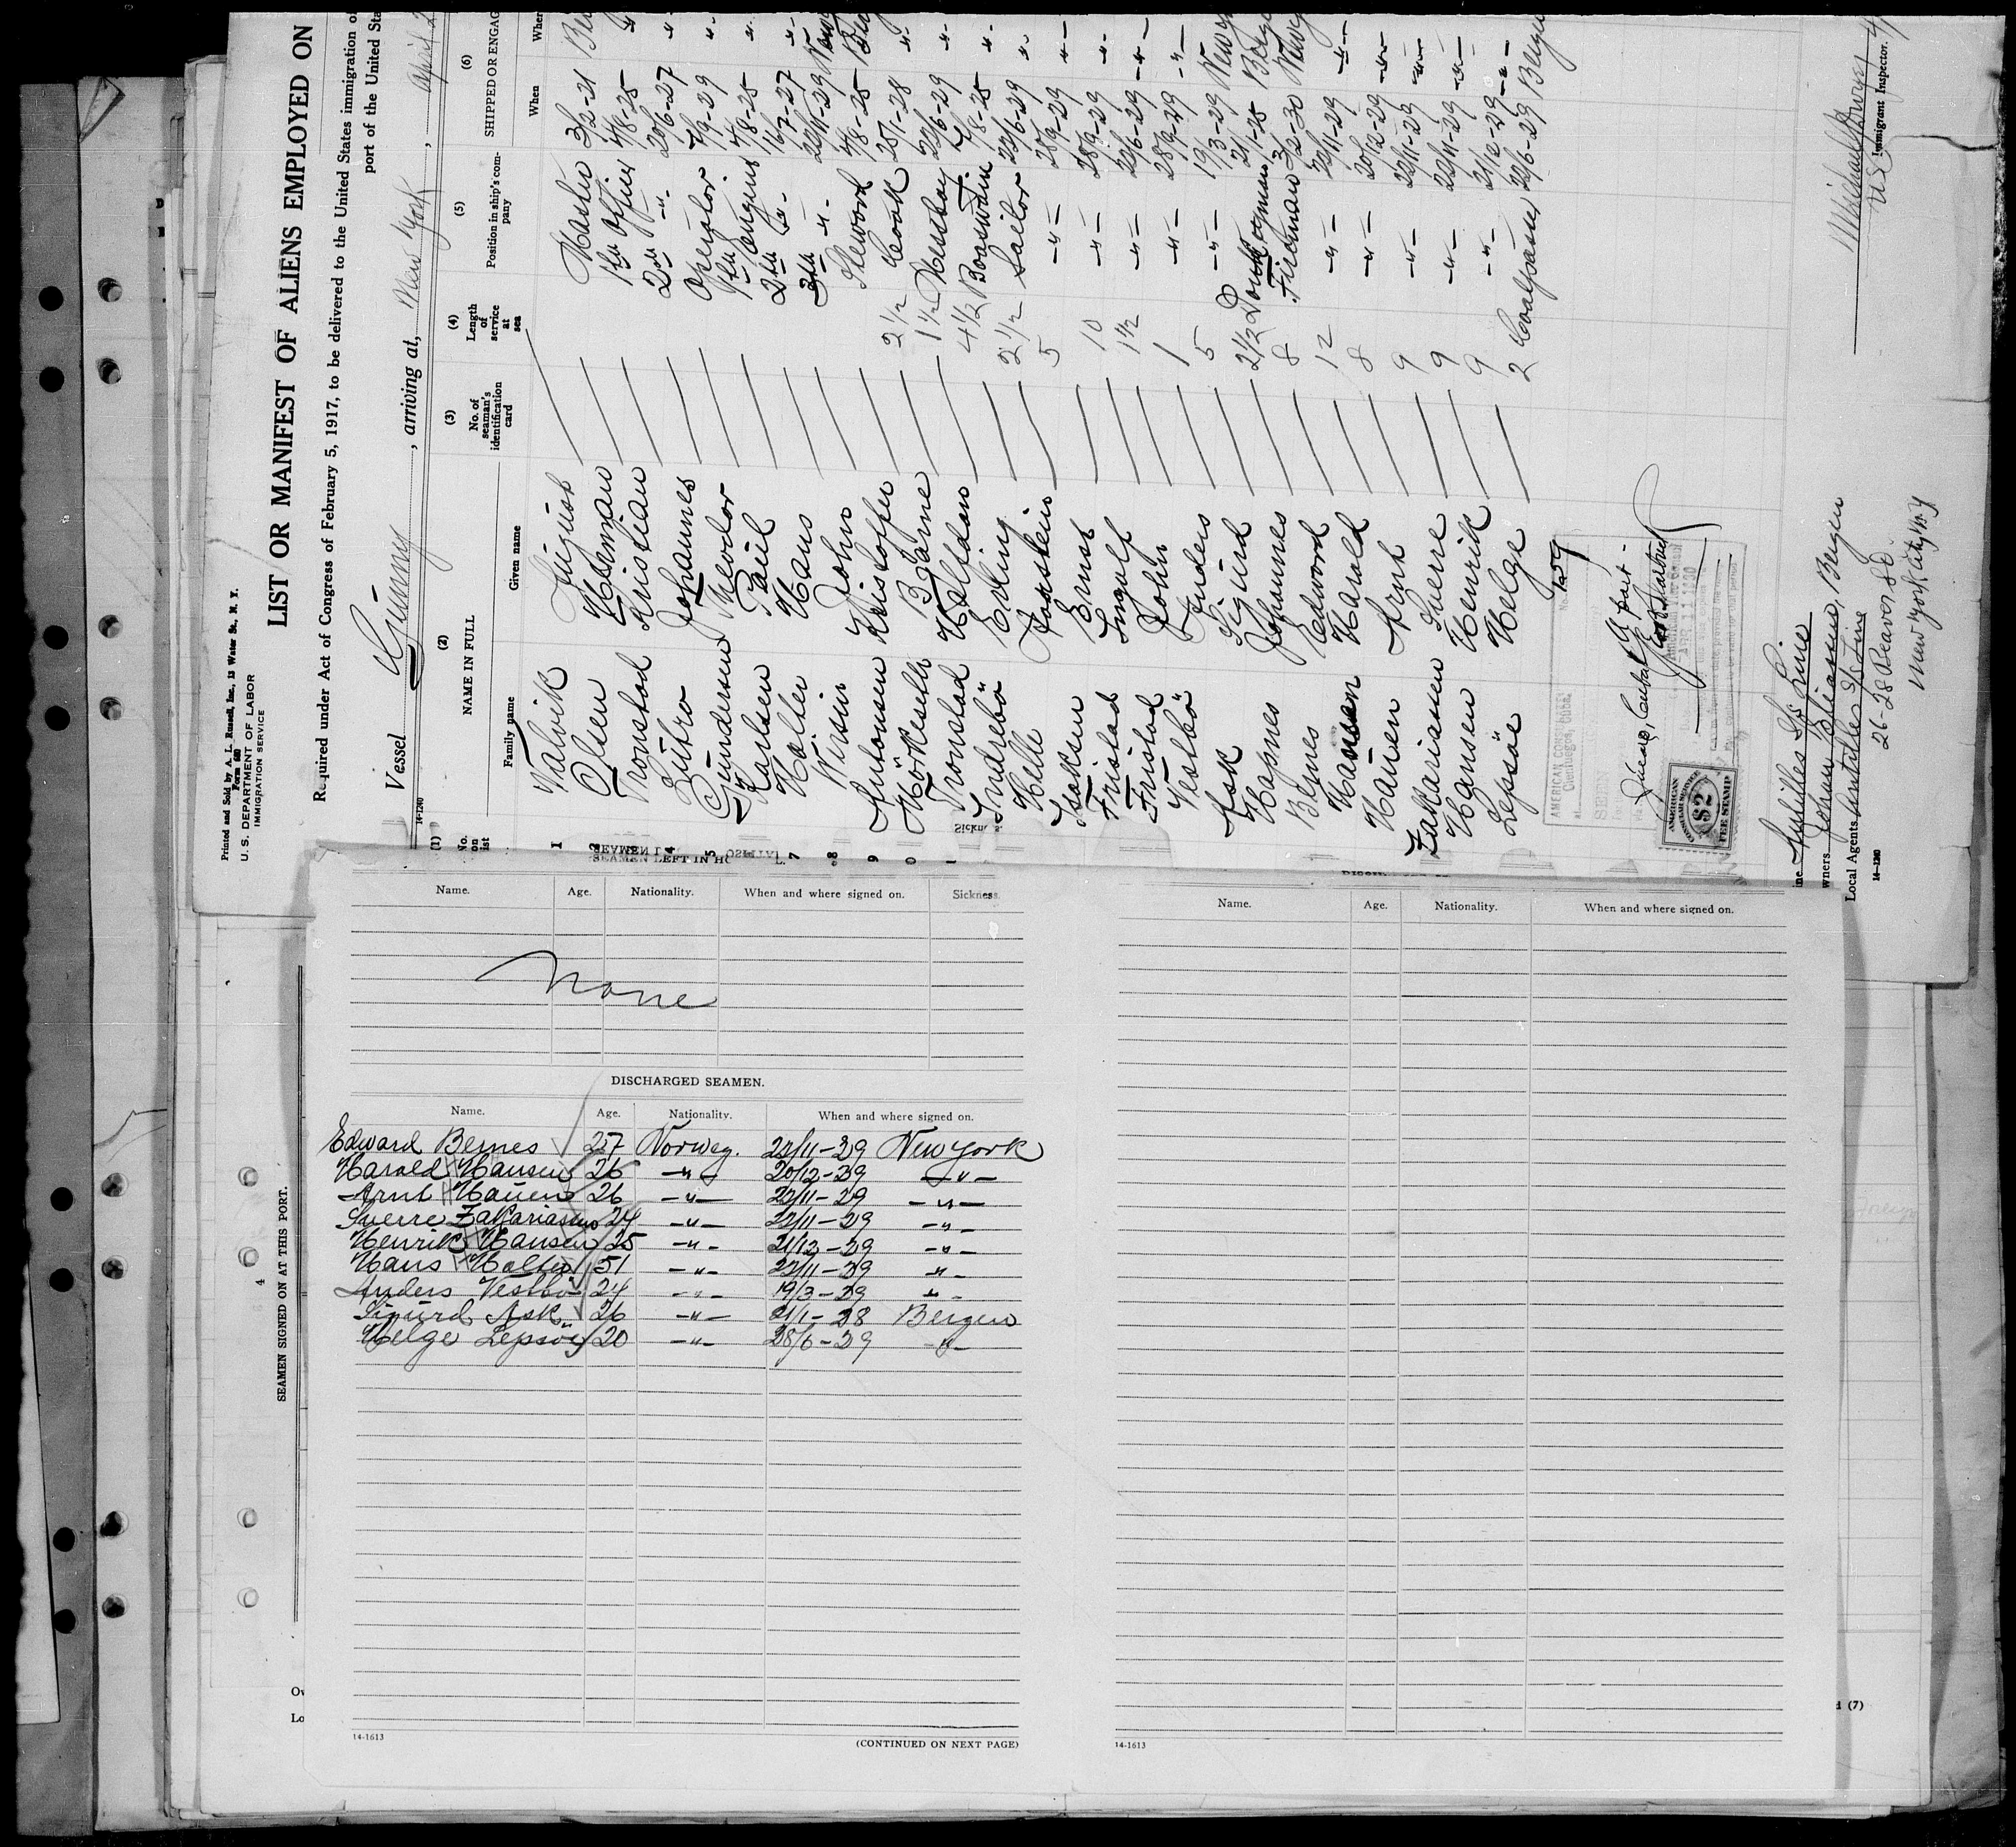 Printed and Sold by A. L. Russell, Inc., 13 Water St., N. Y.
Form 680
U. S. DEPARTMENT OF LABOR
IMMIGRATION SERVICE
LIST OR MANIFEST OF ALIENS EMPLOYED ON
Required under Act of Congress of February 5, 1917, to be delivered to the United States immigration
port of the United
Vessel Gunny, arriving at, New York, April 2
14-1240
(1) (2) (3) (4) (5) (6)
No. on list NAME IN FULL No. of seaman's identification card Length of service at sea Position in ship's company SHIPPED OR ENGAG
Family name Given name When Wher
1 Valvik August Master 3/2-21
Olsen Herman 1ste Officer 4/8-25 -"-
Tronstad Kristian 2den -"- 20/6-27 -"-
4 Johannes Operator 7/9-29 -"-
5 Gundersen Theodor 1ste Engins 4/8-25 -"-
Karlsen Paul 2den -"- 11/7-27 -"-
7 Holter Hans 3die -"- 22/11-29 New
8 John Steward 4/8-25
9 Antonsen Kristoffer 2 1/2 Cook 25/1-28 -"-
Bjarne 1 1/2 Messboy 22/6-29 -"-
Tronstad Halfdan 4 1/2 Boatswain 7/8-25 -"-
Indrebö Erling 2 1/2 Sailor 22/6-29 -"-
Helle Torstein 5 -"- 28/9-29 -"-
Isaksen Ernst 10 -"- 28/9-29 -"-
Fristad Ingolf 1 1/2 -"- 22/6-29 -"-
Fristad John 1 -"- 28/9-29 -"-
Vestbö Anders 5 -"- 19/3-29 New
Ask Sigurd 2 1/2 21/1-28
Hapnes Johannes 8 Fireman 3/2-30
Bernes Edword 12 -"- 22/11-29 -"-
Hansen Harald 8 -"- 20/12-29 -"-
Hauen Arnt 9 -"- 22/11-29 -"-
Zakariassen Sverre 9 -"- 22/11-29 -"-
Hansen Henrik 9 -"- 21/12-29 -"-
Lepsöe Helge 2 Coalpasser 22/6-29 Bergen
AMERICAN CONSUL
Cienfuegos, Cuba.
SEEN
APR 11 1930
AMERICAN
CONSULAR SERVICE
$2
FEE STAMP
Antilles S/S Line
Owners Bergen
Local Agents Antilles S/S Line
26-28 Beaver St.
New York City N.Y.
14-1240
Immigrant Inspector.
SEAMEN LEFT IN HOSPITAL.
Name. Age. Nationality. When and where signed on. Sickness.
None
DISCHARGED SEAMEN.
Name. Age. Nationality. When and where signed on.
Edward Bernes 27 Norweg. 22/11-29 New York
Harald Hansen 26 -"- 20/12-29 -"-
Arnt Hauen 26 -"- 22/11-29 -"-
Sverre Zakariassen 24 -"- 22/11-29 -"-
Henrik Hansen 25 -"- 21/12-29 -"-
Hans Holter 51 -"- 22/11-29 -"-
Anders Vestbö 24 -"- 19/3-29 -"-
Sigurd Ask 26 -"- 21/1-28 Bergen
Helge Lepsöe 20 -"- 28/6-29 -"-
14-1613
(CONTINUED ON NEXT PAGE)
Name. Age. Nationality. When and where signed on.
14-1613
4
SEAMEN SIGNED ON AT THIS PORT.
Ow
Lo
(7)